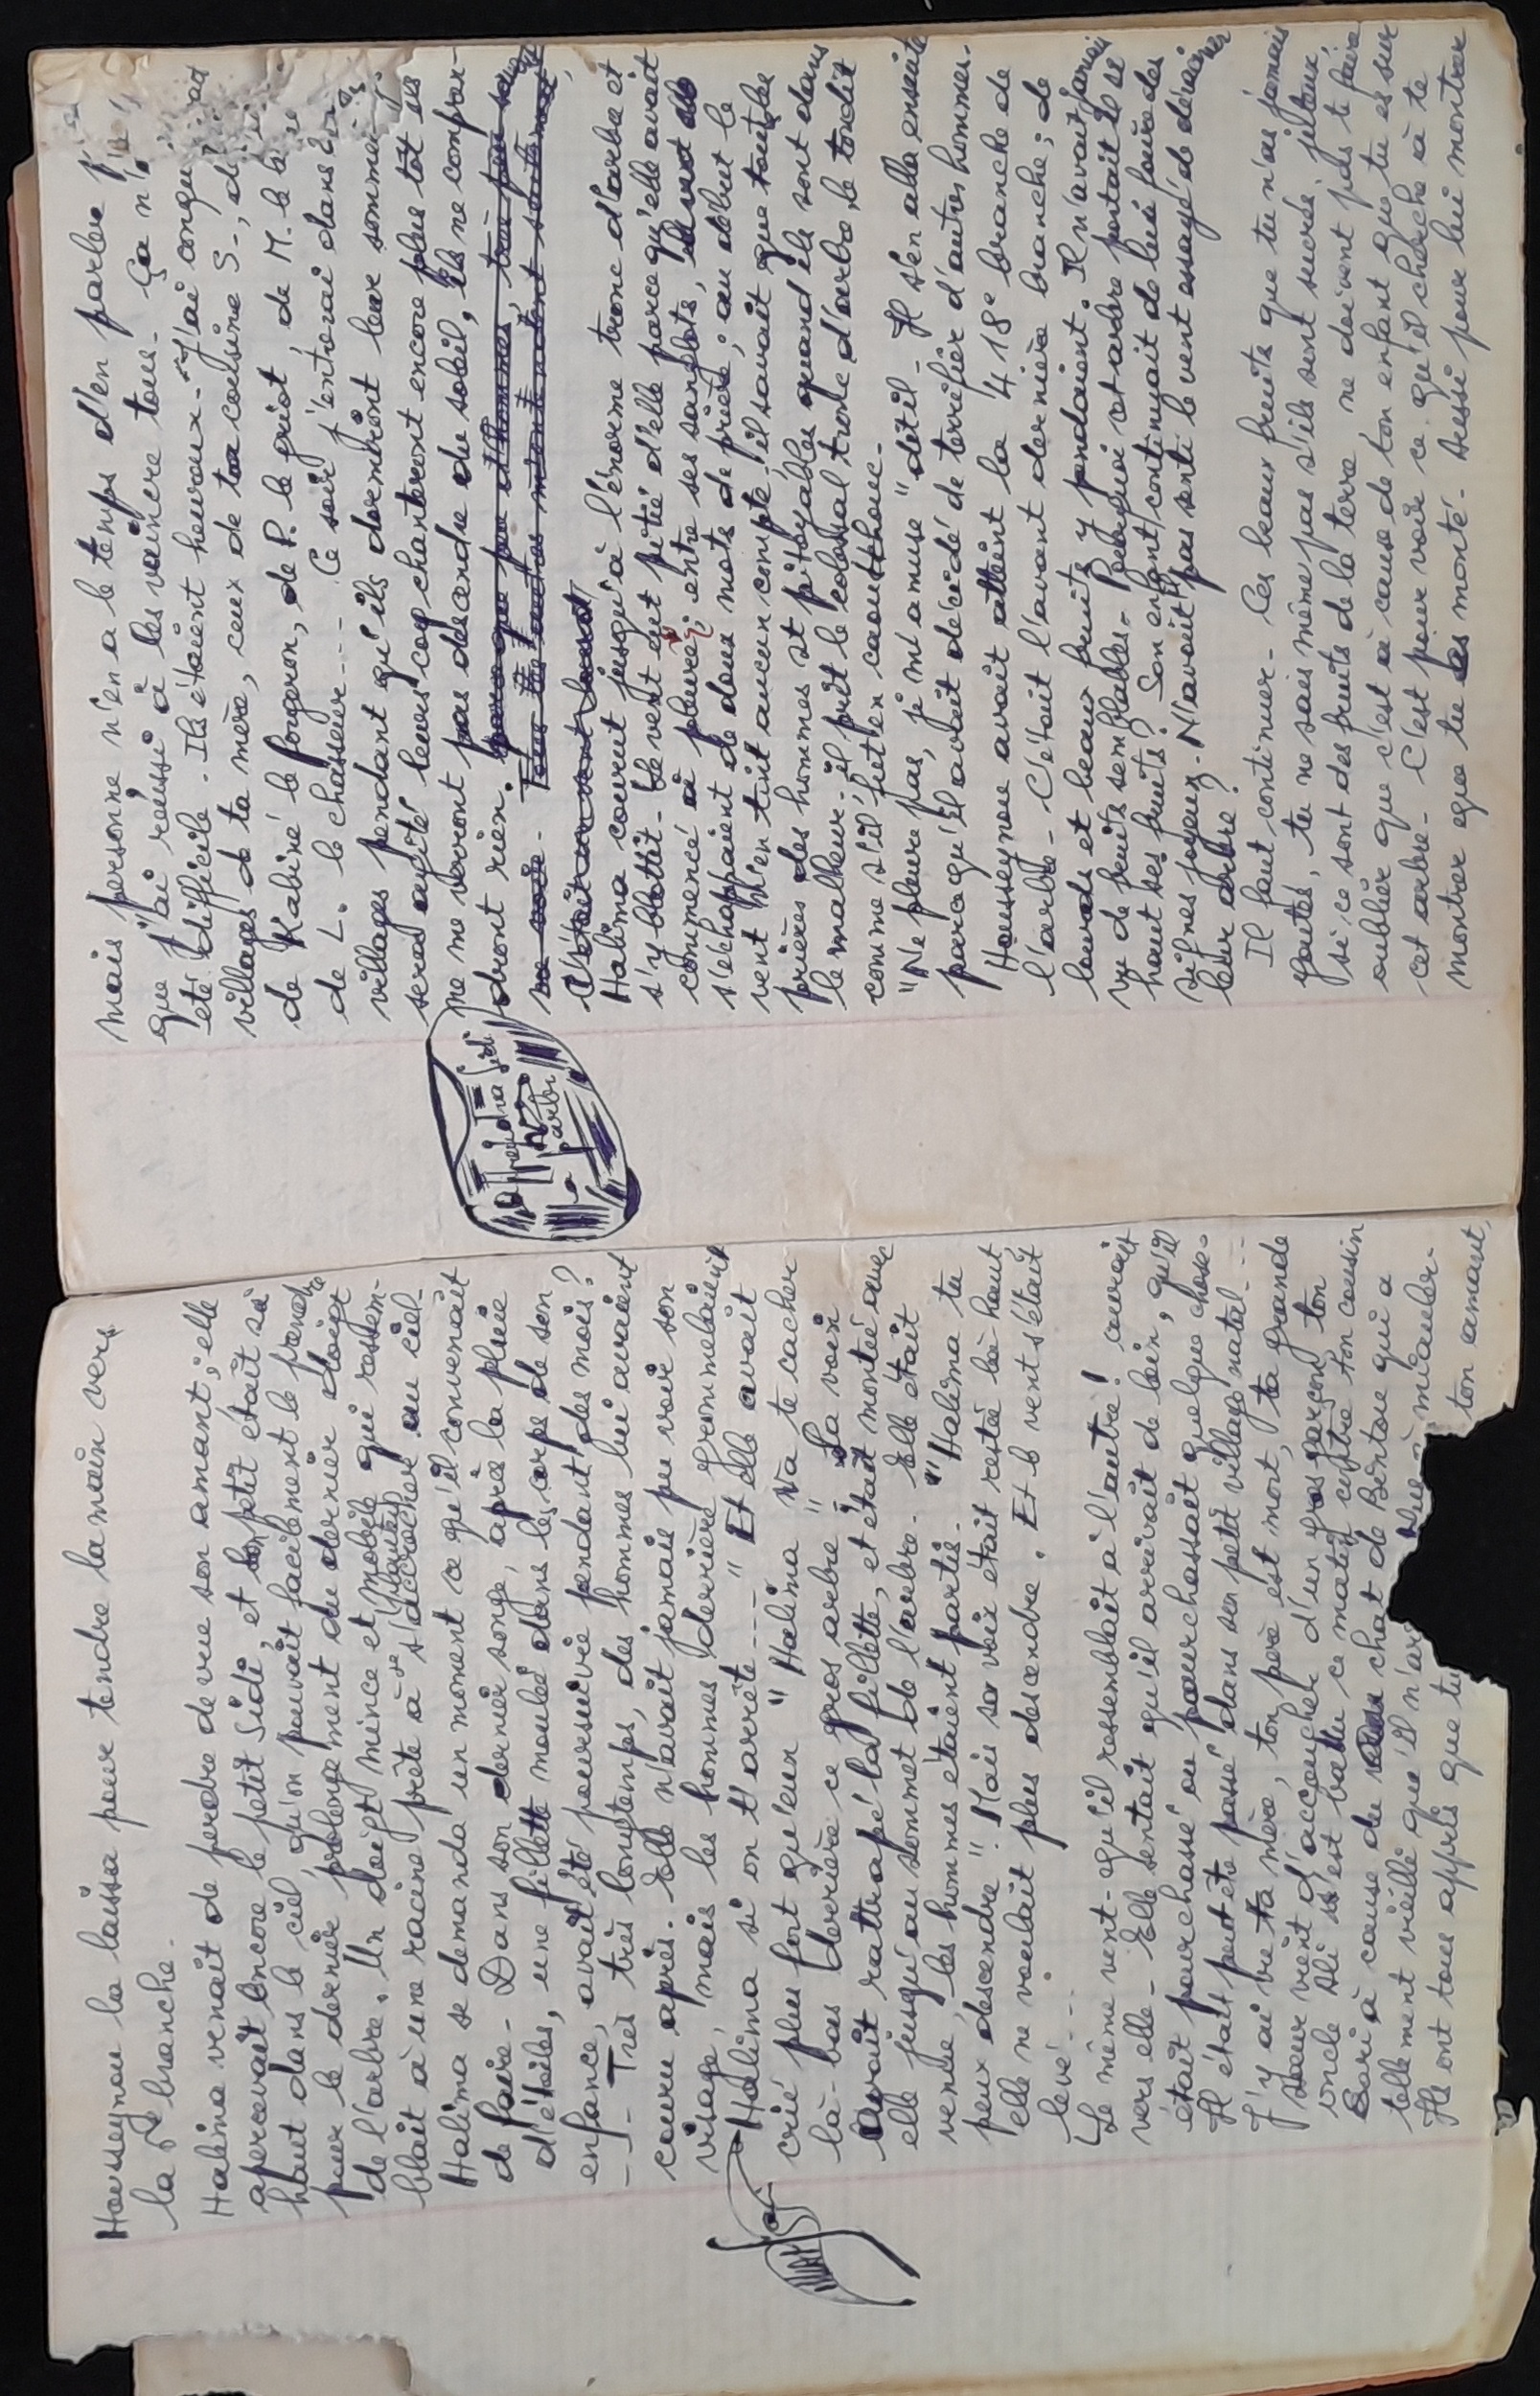 Housseynou la laissa pour tendre la main vers
la branche.
Halima venait de perdre de vue son amant; elle
apercevait encore le petit Sidi, et son petit était si
haut dans le ciel, qu'on pouvait facilement le prendre
pour le dernier prolongement du dernier doigt
de l'arbre. Un doigt mince et mobile qui ressem-
blait à une racine prête à s'accrocher au ciel.
Halima se demanda un moment ce qu'il convenait
de faire. Dans son dernier songe, après la pluie
d'étoiles, une fillette moulée dans les corps de son
enfance, avait été poursuivie pendant des mois?
--- Très très longtemps, des hommes lui avaient
couru après. Elle n'avait jamais pu voir son
visage, mais les hommes derrière grommelaient
"Halima si on t'arrête---" Et elle avait
crié plus fort qu'eux "Halima va te cacher
là-bas derrière ce gros arbre". La voix
avait rattrapé la fillette, et était montée avec
elle jusqu'au sommet de l'arbre. Elle était
venue, les hommes étaient partis. "Halima tu
peux descendre"! Mais sa voix était restée là haut
elle ne voulait plus descendre. Et le vent s'était
levé...
Le même vent. qu'il ressemblait à l'autre! courait
vers elle. Elle sentait qu'il arrivait de loin, qu'il
était pourchassé ou pourchassait quelque chose.
Il était peut-être passé dans son petit village natal...
J'y ai vu ta mère, ton père est mort, ta grande
sœur vient d'accoucher d'un gros garçon, ton
oncle Ali s'est battu ce matin contre ton cousin
Bari à cause du chat de Bintou qui a
tellement vieilli qu'il n'arr miauler.
Ils ont tous appris que tu ton amant,
mais personne n'en a le temps d'en parler
que j'ai réussi à les vaincre tous. Ça n'a
été difficile. Ils étaient heureux. J'ai conquis
villages de ta mère, ceux de ta cousine S-,
de Kabiné le forgeron, de P. le griot, de M. le
de L. le chasseur... Ce soir j'entrerai dans
villages pendant qu'ils dormiront leur sommeil
seras agité leurs coq chanteront encore plus tôt ils
ne me verront pas descendre du soleil, ils ne compren-
dront rien. parce que peu d'hommes, très peu
C'était un vent lourd,
Halima courut jusqu'à l'énorme tronc d'arbre et
s'y blottit. Le vent eut pitié d'elle parce qu'elle avait
commencé à pleurer; entre ses sanglots,
s'échappaient de doux mots de prière; au début le
vent n'en tint aucun compte. il savait que toutes les
prières des hommes st pitoyables quand ils sont dans
le malheur. il prit le colossal tronc d'arbre, le tordit
comme s'il fut en caoutchouc.
"Ne pleure pas, je m'amuse" dit-il. Il s'en alla ensuite
parce qu'il avait décidé de terrifier d'autres hommes.
Housseynou avait atteint la 418e branche de
l'arbre. C'était l'avant dernière branche; de
lourds et beaux fruits y pendaient. Il n'avait jamais
vu de fruits semblables. Pourquoi cet arbre portait il si
haut ses fruits? Son enfant continuait de lui faire des
signes joyeux. N'avait-il pas senti le vent essayé de déraciner
leur arbre?
Il faut continuer. Ces beaux fruits que tu n'as jamais
goutés, tu ne sais même pas s'ils sont sucrés, juteux
si ce sont des fruits de la terre ne doivent pas te faire
oublier que c'est à cause de ton enfant que tu es sur
cet arbre. C'est pour voir ce qu'il cherche à te
montrer que tu es monté. Aussi pour lui montrer
La Sidi
à l'arbre